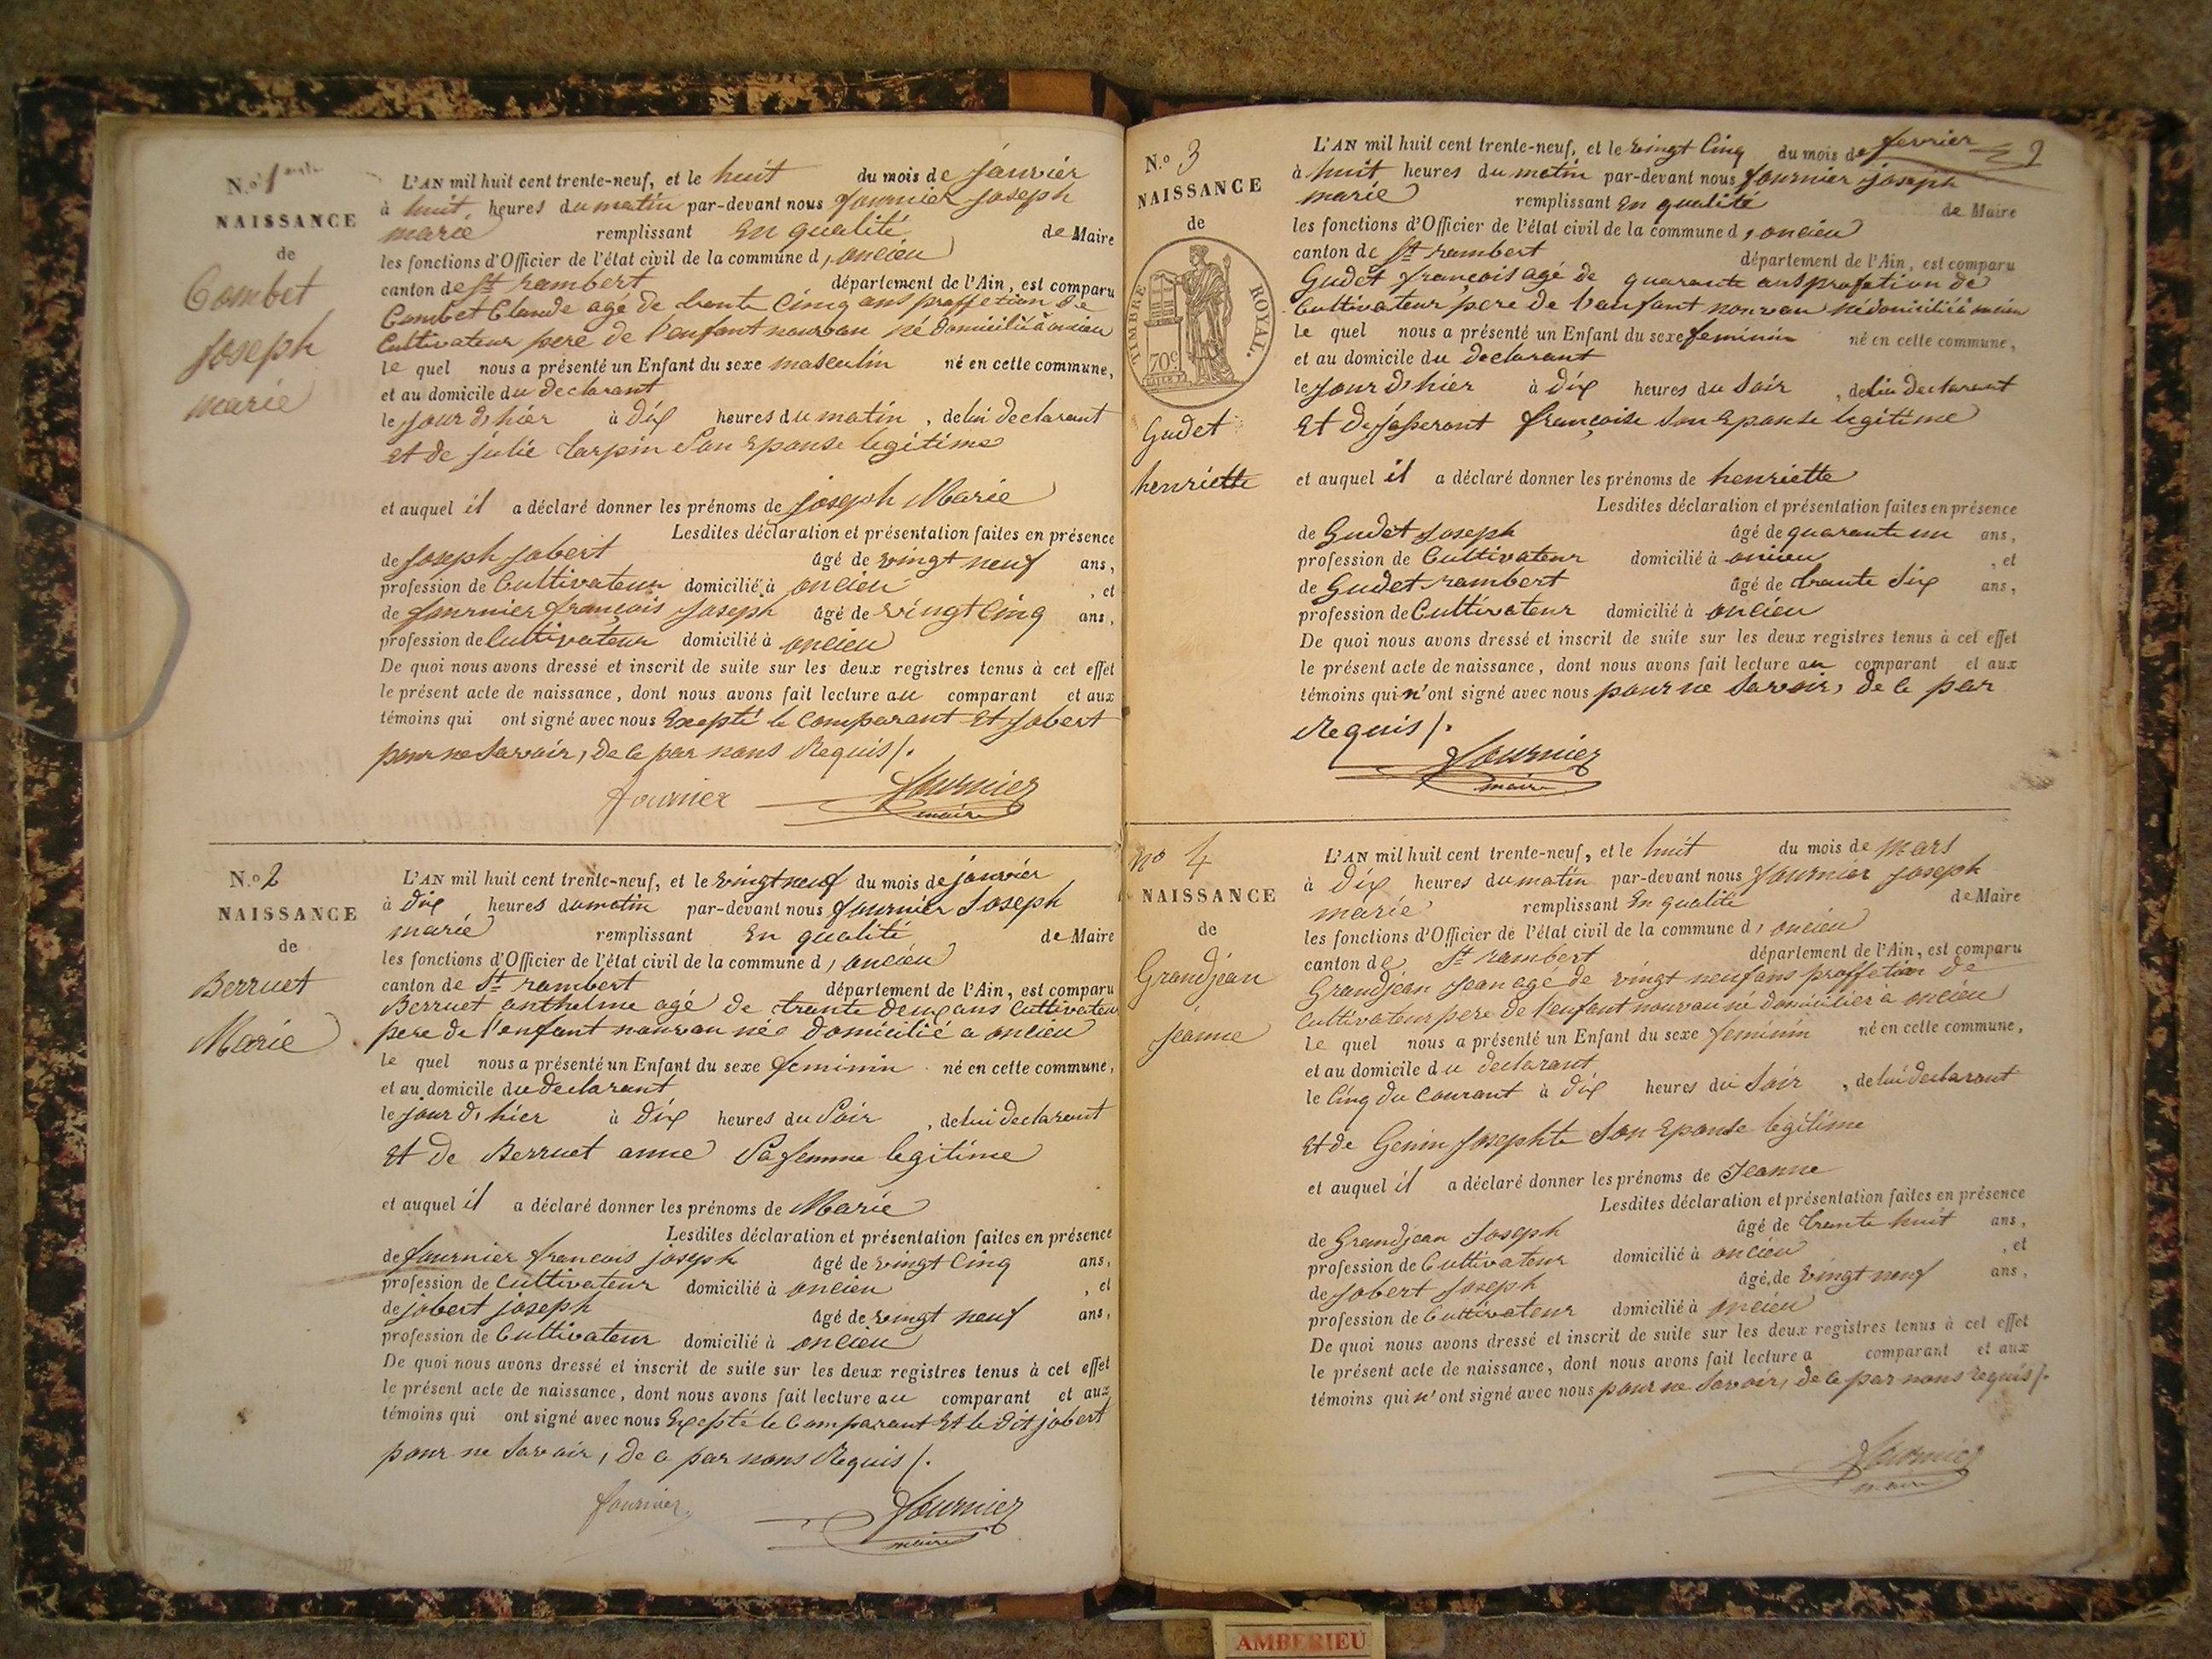 N.º 1
NAISSANCE
de
Combet
Joseph
marie
L'AN mil huit cent trente-neuf, et le huit du mois de janvier
à huit heures du matin par-devant nous fournier joseph
marie remplissant En qualité de Maire
les fonctions d'Officier de l'état civil de la commune d, oncieu
canton de St rambert département de l'Ain, est comparu
Combet Claude agé de trente Cinq ans proffetion de
Cultivateur pere de l'enfant nouveau né domicilié à oncieu
le quel nous a présenté un Enfant du sexe masculin né en cette commune,
et au domicile du declarant
le jour d, hier à dix heures du matin, de lui declarant
Et de julie tarpin Son Epouse legitime
et auquel il a déclaré donner les prénoms de joseph Marie
Lesdites déclaration et présentation faites en présence
de Joseph jobert âgé de vingt neuf ans,
profession de Cultivateur domicilié à oncieu, et
de fournier françois Joseph âgé de vingt Cinq ans,
profession de Cultivateur domicilié à oncieu
De quoi nous avons dressé et inscrit de suite sur les deux registres tenus à cet effet
le présent acte de naissance, dont nous avons fait lecture au comparant et aux
témoins qui ont signé avec nous Excepté le comparant Et jobert
pour ne Savoir, de ce par nous Requis /.
fournier fournier
maire
N.º 2
NAISSANCE
de
Berruet
Marie
L'AN mil huit cent trente-neuf, et le vingt neuf du mois de janvier
à dix heures du matin par-devant nous fournier Joseph
marie remplissant En qualité de Maire
les fonctions d'Officier de l'état civil de la commune d, oncieu
canton de St rambert département de l'Ain, est comparu
Berruet anthelme agé de trente deux ans Cultivateur
pere de l'enfant nouveau née domicilié a oncieu
le quel nous a présenté un Enfant du sexe feminin né en cette commune,
et au domicile du declarant
le jour d, hier à dix heures du Soir, de lui declarant
Et de Berruet anne Sa femme legitime
et auquel il a déclaré donner les prénoms de Marie
Lesdites déclaration et présentation faites en présence
de fournier francois joseph âgé de vingt Cinq ans,
profession de Cultivateur domicilié à oncieu, et
de jobert joseph âgé de vingt neuf ans,
profession de Cultivateur domicilié à oncieu
De quoi nous avons dressé et inscrit de suite sur les deux registres tenus à cet effet
le présent acte de naissance, dont nous avons fait lecture au comparant et aux
témoins qui ont signé avec nous Excepté le Comparant Et le dit jobert
pour ne Savoir, de ce par nous Requis /.
fournier fournier
maire
N.º 3
NAISSANCE
de
TIMBRE ROYAL.
70c
Gudet
henriette
L'AN mil huit cent trente-neuf, et le vingt Cinq du mois de fevrier 2
à huit heures du matin par-devant nous fournier joseph
marie remplissant En qualité de Maire
les fonctions d'Officier de l'état civil de la commune d, oncieu
canton de St rambert département de l'Ain, est comparu
Gudet françois agé de quarante ans profetion de
Cultivateur pere de l'anfant nouveau né domicilié à oncieu
le quel nous a présenté un Enfant du sexe feminin né en cette commune,
et au domicile du declarant
le jour d, hier à dix heures du Soir, de lui declarant
Et de josserant françoise Son Epouse legitime
et auquel il a déclaré donner les prénoms de henriette
Lesdites déclaration et présentation faites en présence
de Gudet Joseph âgé de quarante un ans,
profession de Cultivateur domicilié à oncieu, et
de Gudet rambert âgé de trante Six ans,
profession de Cultivateur domicilié à oncieu
De quoi nous avons dressé et inscrit de suite sur les deux registres tenus à cet effet
le présent acte de naissance, dont nous avons fait lecture au comparant et aux
témoins qui n'ont signé avec nous pour ne Savoir, de ce par
Requis /.
fournier
maire
no 4
NAISSANCE
de
Grandjean
Jeanne
L'AN mil huit cent trente-neuf, et le huit du mois de mars
à dix heures du matin par-devant nous fournier Joseph
marie remplissant En qualité de Maire
les fonctions d'Officier de l'état civil de la commune d, oncieu
canton de St rambert département de l'Ain, est comparu
Grandjean Jean agé de vingt neuf ans proffetion de
Cultivateur pere de l'enfant nouveau né domicilier à oncieu
le quel nous a présenté un Enfant du sexe feminin né en cette commune,
et au domicile du declarant
le Cinq du Courant à dix heures du Soir, de lui declarant
Et de Genin Josephte Son Epouse legitime
et auquel il a déclaré donner les prénoms de Jeanne
Lesdites déclaration et présentation faites en présence
de Grandjean Joseph âgé de trente huit ans,
profession de Cultivateur domicilié à oncieu, et
de Jobert Joseph âgé de vingt neuf ans,
profession de Cultivateur domicilié à oncieu
De quoi nous avons dressé et inscrit de suite sur les deux registres tenus à cet effet
le présent acte de naissance, dont nous avons fait lecture a comparant et aux
témoins qui n'ont signé avec nous pour ne Savoir, de ce par nous requis /.
fournier
maire
AMBERIEU